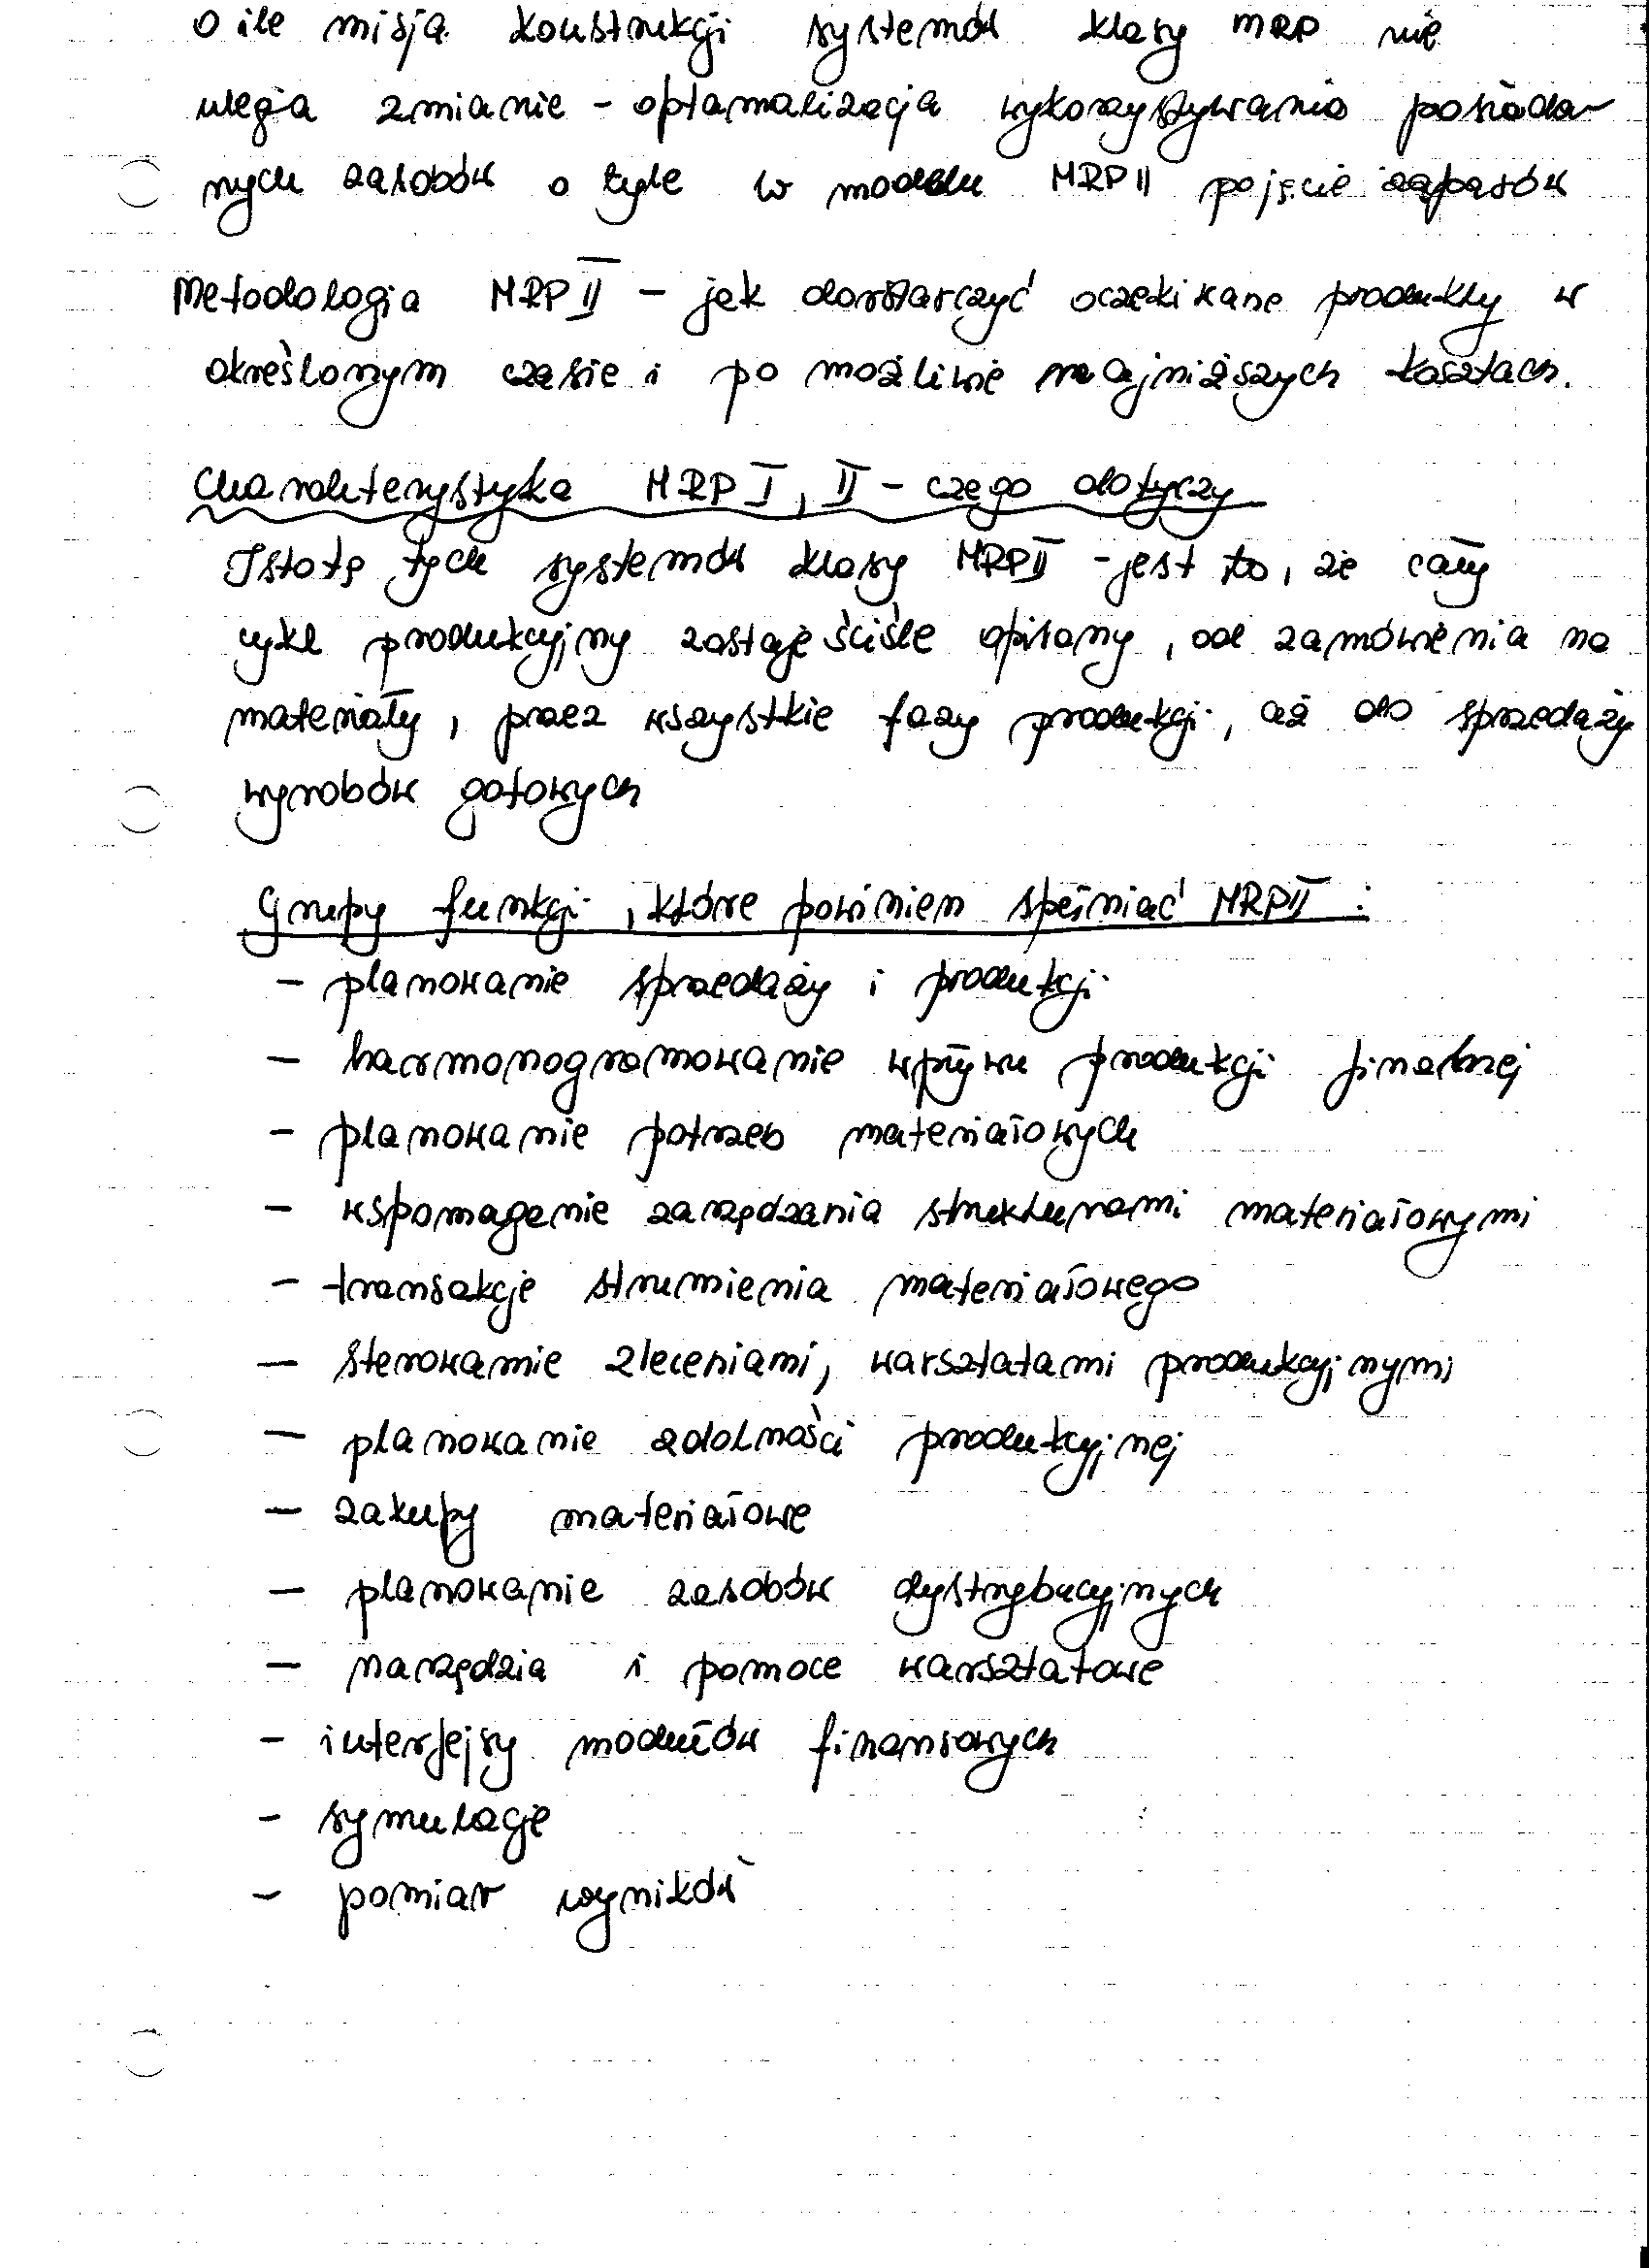 o ile misja konstrukcji systemów klasy MRP nie
ulega zmianie - optamalizacja wykorzystywania posiada-
nych zasobów o tyle w modelu MRP II pojęcie zapasów
Metodologia MRP II - jak dorstarczyć oczekiwane produkty w
określonym czasie i po możliwie najniższych kosztach.
Charakterystyka MRP I, II - czego dotyczy
Istotę tych systemów klasy MRP II - jest to, że cały
cykl produkcyjny zostaje ściśle opisany, od zamówienia na
materiały, przez wszystkie fazy produkcji, aż do sprzedaży
wyrobów gotowych
Grupy funkcji, które powinien spełniać MRP II :
- planowanie sprzedaży i produkcji
- harmonogramowanie wpływu produkcji finalnej
- planowanie potrzeb materiałowych
- wspomaganie zarządzania strukturami materiałowymi
- transakcje strumienia materiałowego
- sterowanie zleceniami, warsztatami produkcyjnymi
- planowanie zdolności produkcyjnej
- zakupy materiałowe
- planowanie zasobów dystrybucyjnych
- narzędzia i pomoce warsztatowe
- interfejsy modułów finansowych
- symulacje
- pomiar wyników